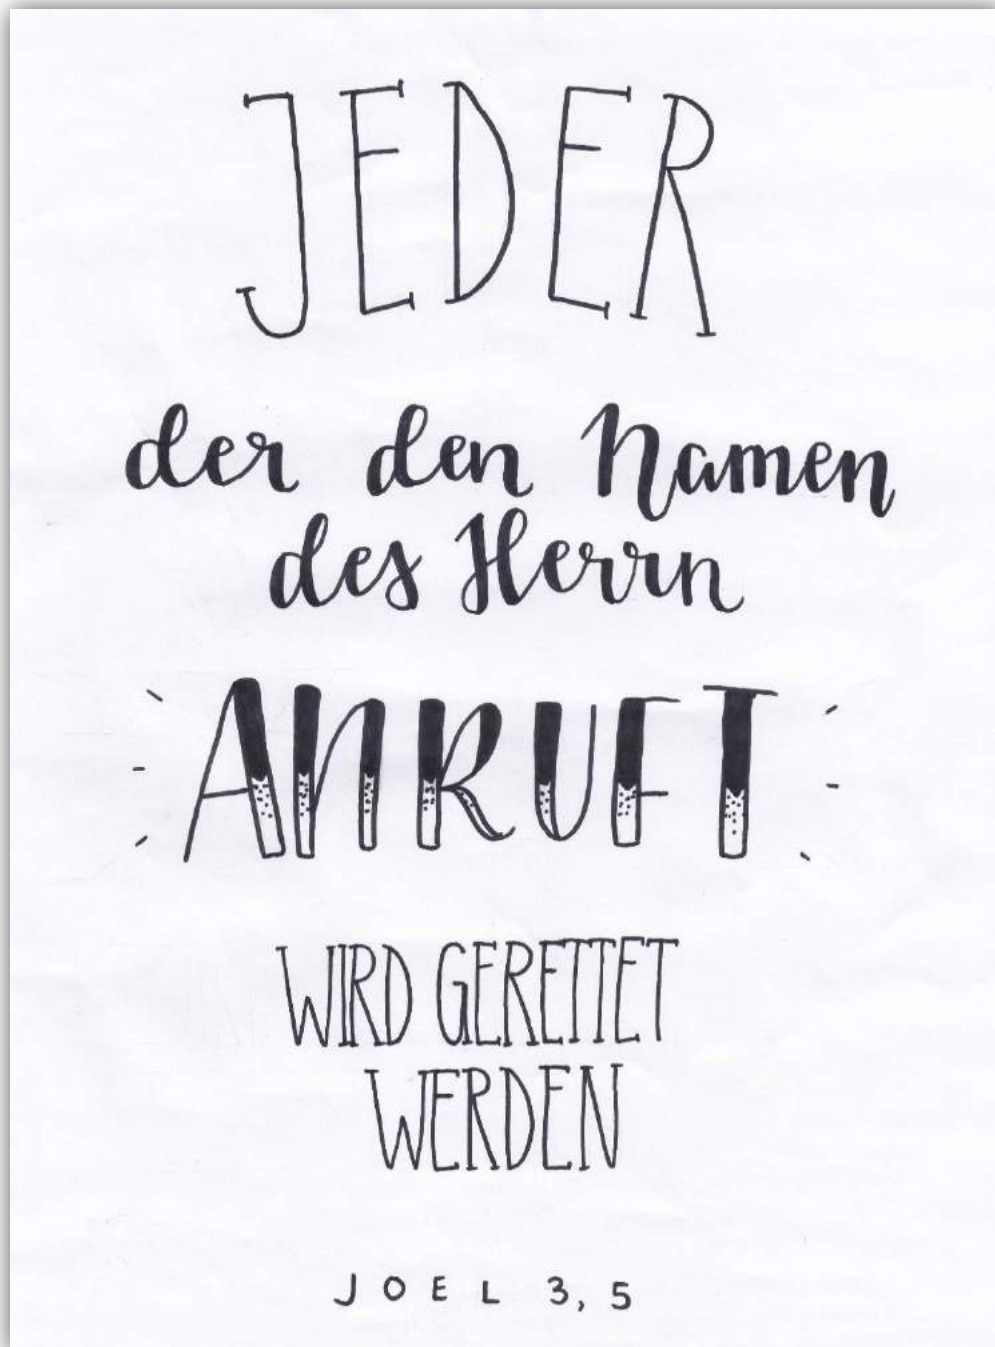 JEDER
der den Namen
des Herrn
ANRUFT
WIRD GERETTET
WERDEN
JOEL 3,5